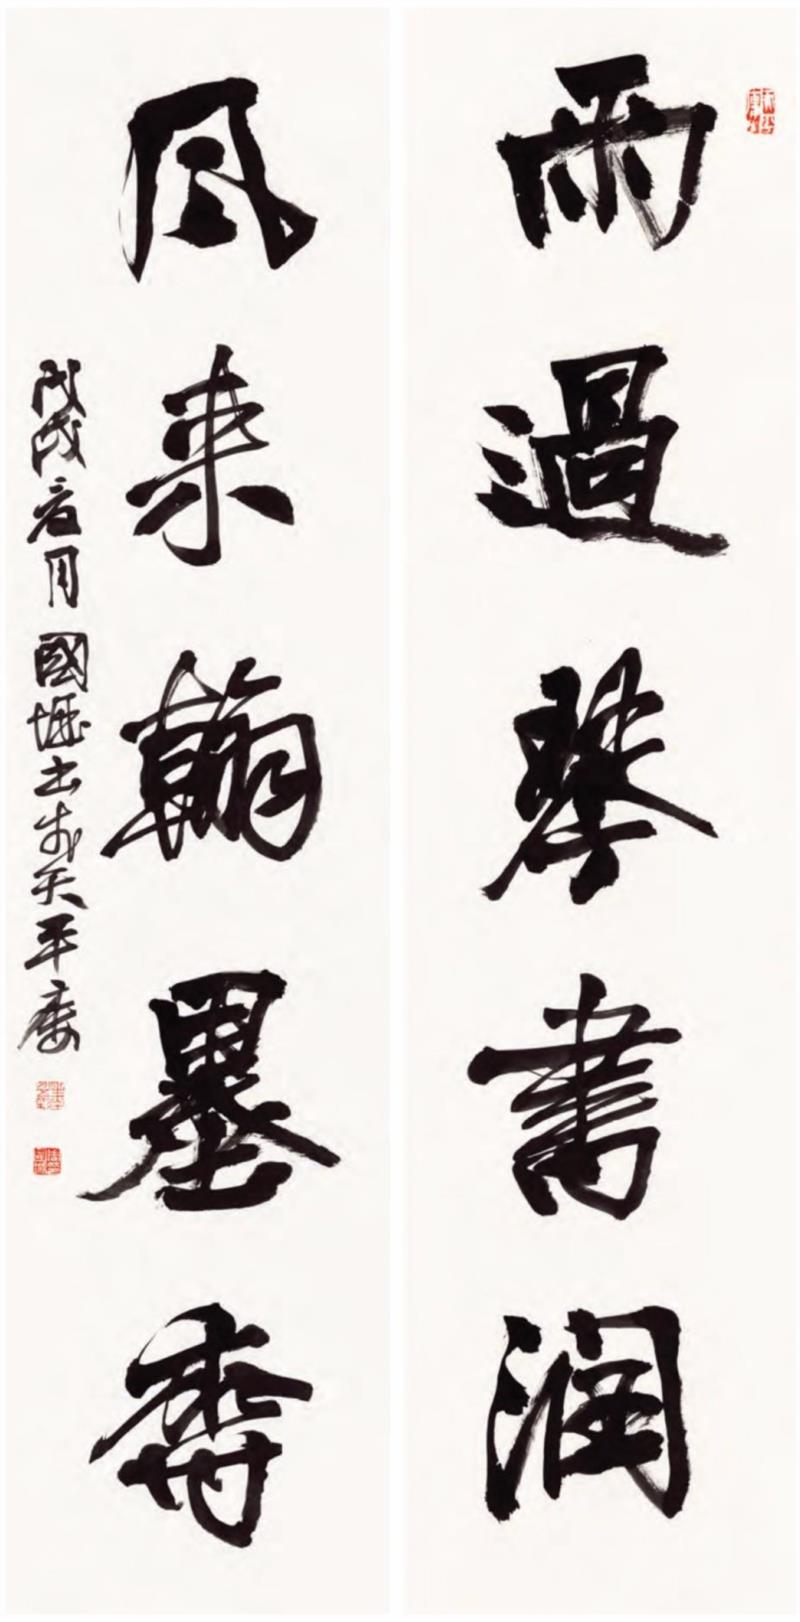 雨過琴書潤
風来翰墨香
戊戌春月國城書於天平廔